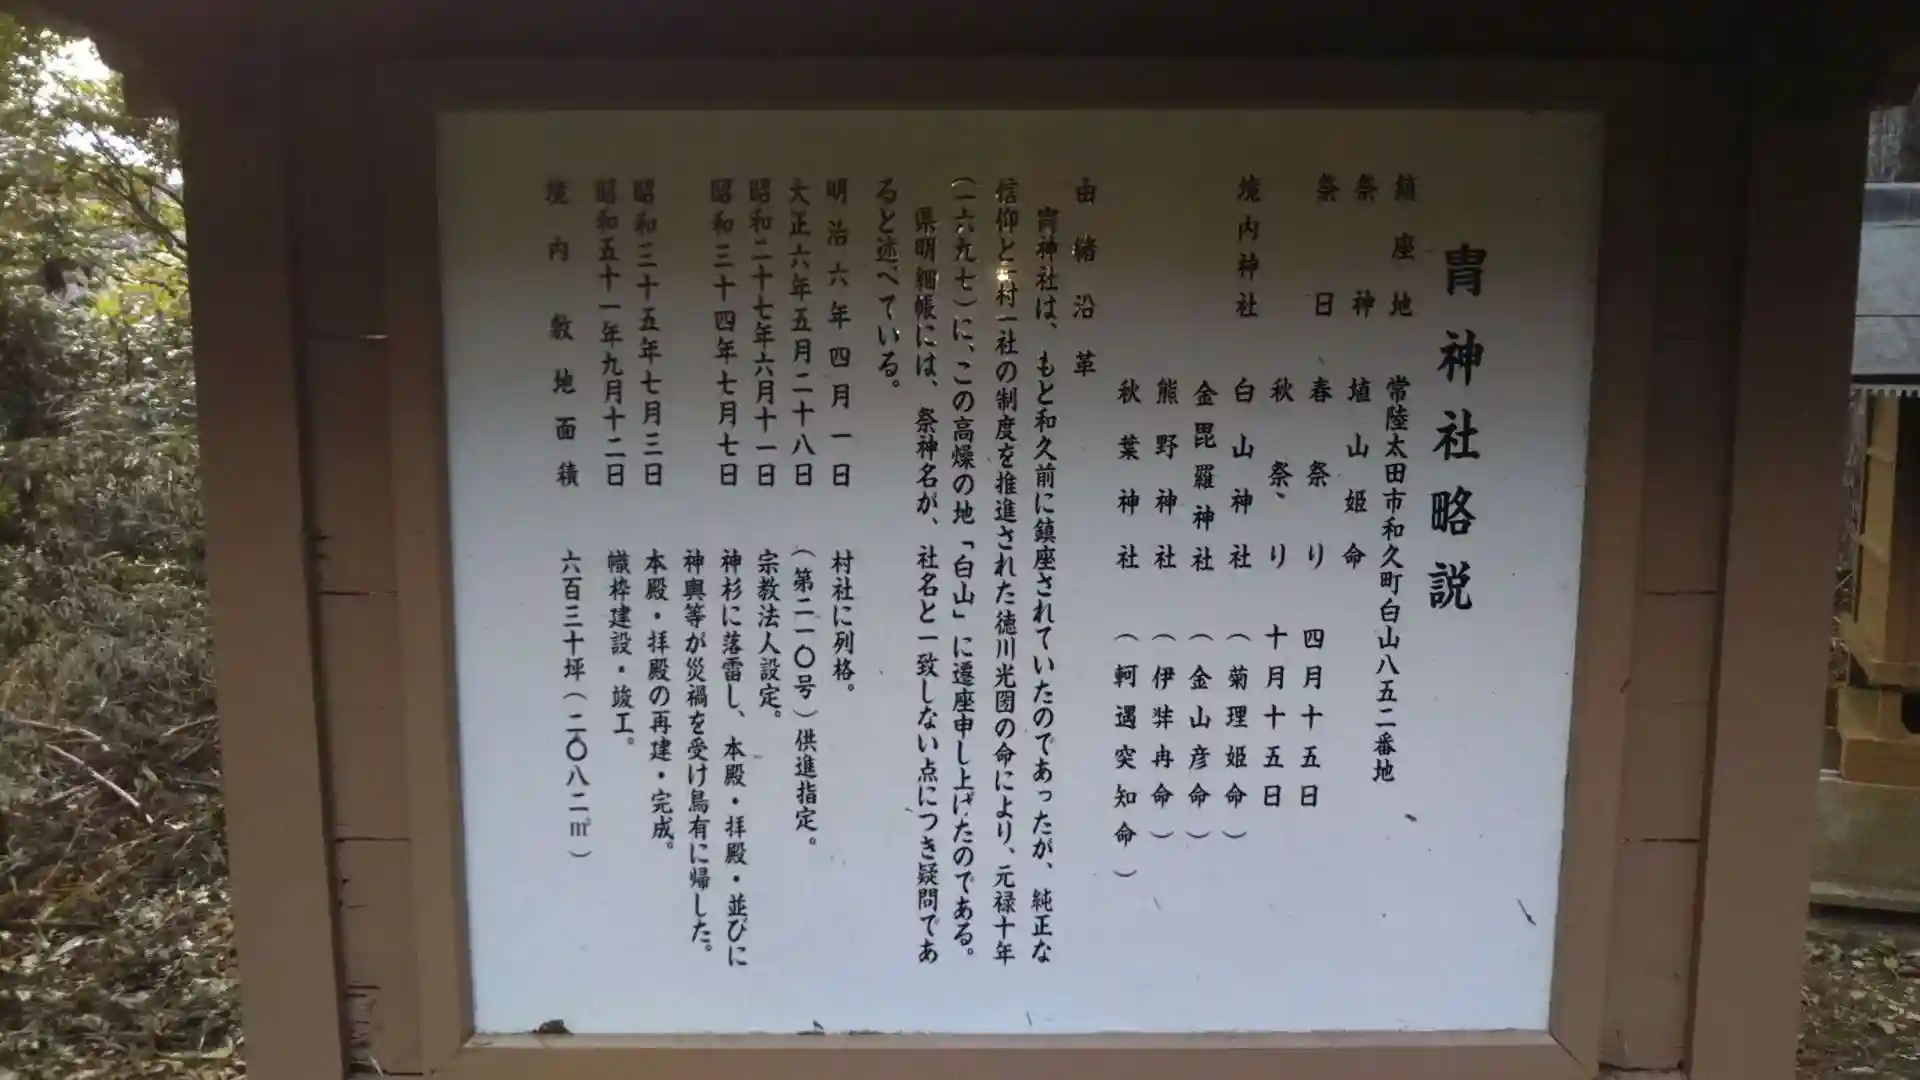 冑神社略説
鎮座地 常陸太田市和久町白山八五二番地
祭神 埴山姫命
祭日 春祭り 四月十五日
秋祭り 十月十五日
境内神社 白山神社（菊理姫命）
金毘羅神社（金山彦命）
熊野神社（伊弉冉命）
秋葉神社（軻遇突知命）
由緒沿革
冑神社は、もと和久前に鎮座されていたのであったが、純正な
信仰と一村一社の制度を推進された徳川光圀の命により、元禄十年
（一六九七）に、この高燥の地「白山」に遷座申し上げたのである。
県明細帳には、祭神名が、社名と一致しない点につき疑問であ
ると述べている。
明治六年四月一日 村社に列格。
大正六年五月二十八日 （第二一〇号）供進指定。
昭和二十七年六月十一日 宗教法人設定。
昭和三十四年七月七日 神杉に落雷し、本殿・拝殿・並びに
神輿等が災禍を受け烏有に帰した。
昭和三十五年七月三日 本殿・拝殿の再建・完成。
昭和五十一年九月十二日 幟枠建設・竣工。
境内敷地面積 六百三十坪（二〇八二㎡）